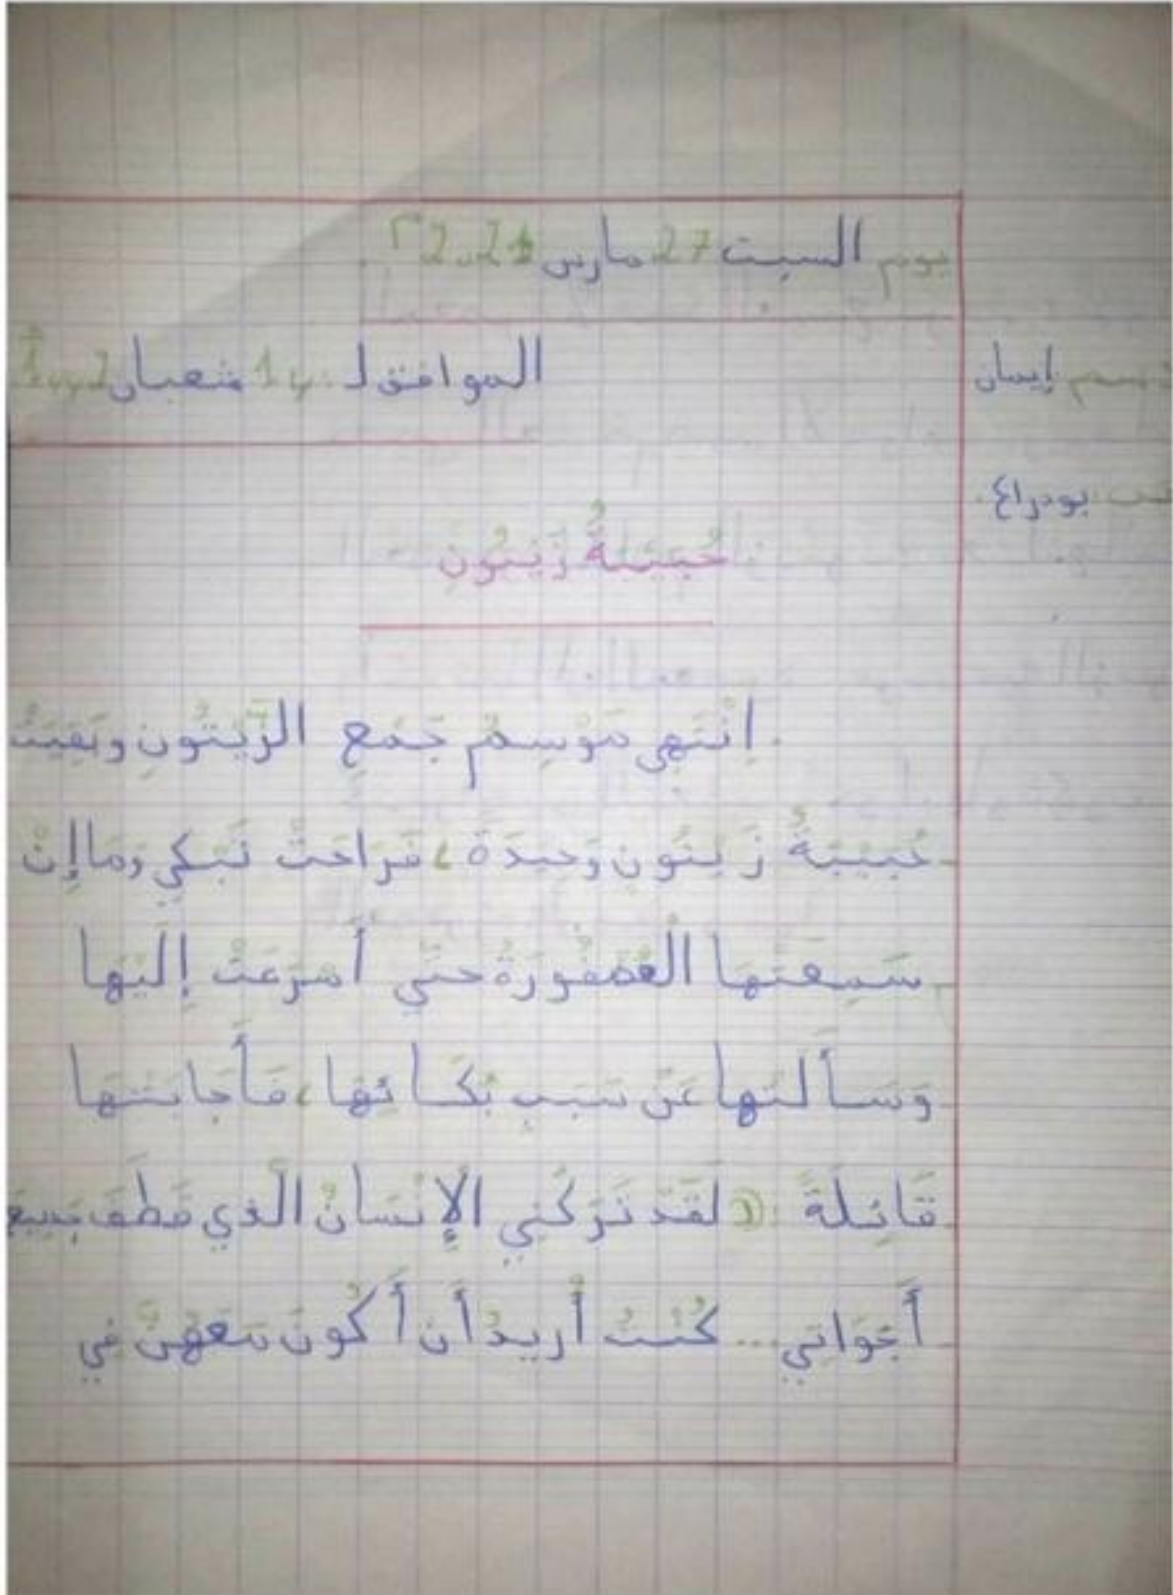 يوم السبت 27 مارس 2021م
الموافق لـ: 14 شعبان
إيمان
بودراع.
حُبَيْبَةُ زَيْتُونٍ
اِنْتَهى مَوْسِمُ جَمْعِ الزَّيْتُونِ وبَقِيَتْ
حُبَيْبَةُ زَيْتُونٍ وَحِيدَةً، فَرَاحَتْ تَبْكِي وَمَا إِنْ
سَمِعَتْهَا الْعُصْفُورَةُ حَتَّى أَسْرَعَتْ إِلَيْهَا
وَسَأَلَتْها عَنْ سَبَبِ بُكَائِهَا، فَأَجَابَتْهَا
قَائِلَةً: «لَقَدْ تَرَكَنِي الْإِنْسَانُ الَّذي قَطَفَ جَمِيعَ
أَخَوَاتِي... كُنْتُ أُرِيدُ أَن أَكُونَ مَعَهُنَّ فِي